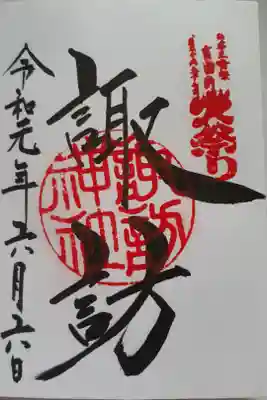 火祭り
諏訪
諏訪
神社
令和元年六月六日